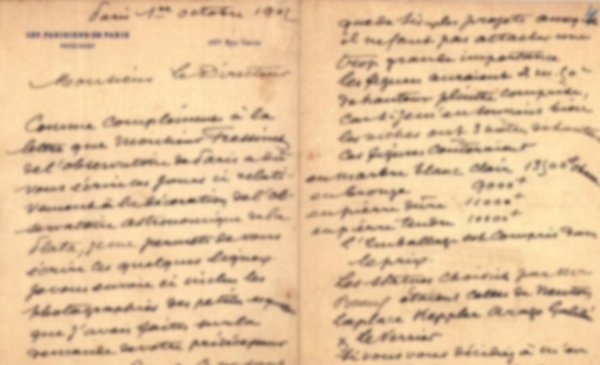 Paris 1er octobre 1902
LES PARISIENS DE PARIS
PRÉSIDENT
Monsieur Le Directeur
Comme complément à la
lettre que Monsieur
de l'observatoire de Paris a dû
vous écrire ces jours ci relati-
vement à la décoration de l'ob-
servatoire astronomique de la
Plata, je me permets de vous
écrire ces quelques lignes
Je vous envoie ci inclus les
photographies des petites esquisses
que j'avais faites sur la
demande de votre prédécesseur
que de simples projets auxquels
il ne faut pas attacher une
trop grande importance
les figures auraient 2 m. 50
de hauteur plinthe comprise,
car si j'en
les niches ont 3 mètres de hauteur
Ces figures couteraient
en marbre blanc clair
en bronze 9000 f
en pierre dure 11000 f
en pierre tendre 10000 f
l'Emballage est compris dans
le prix.
Les statues choisies par Mr
étaient celles de Newton,
Laplace Keppler Arago Galilé
& Leverrier
Si vous vous décidiez à m'en